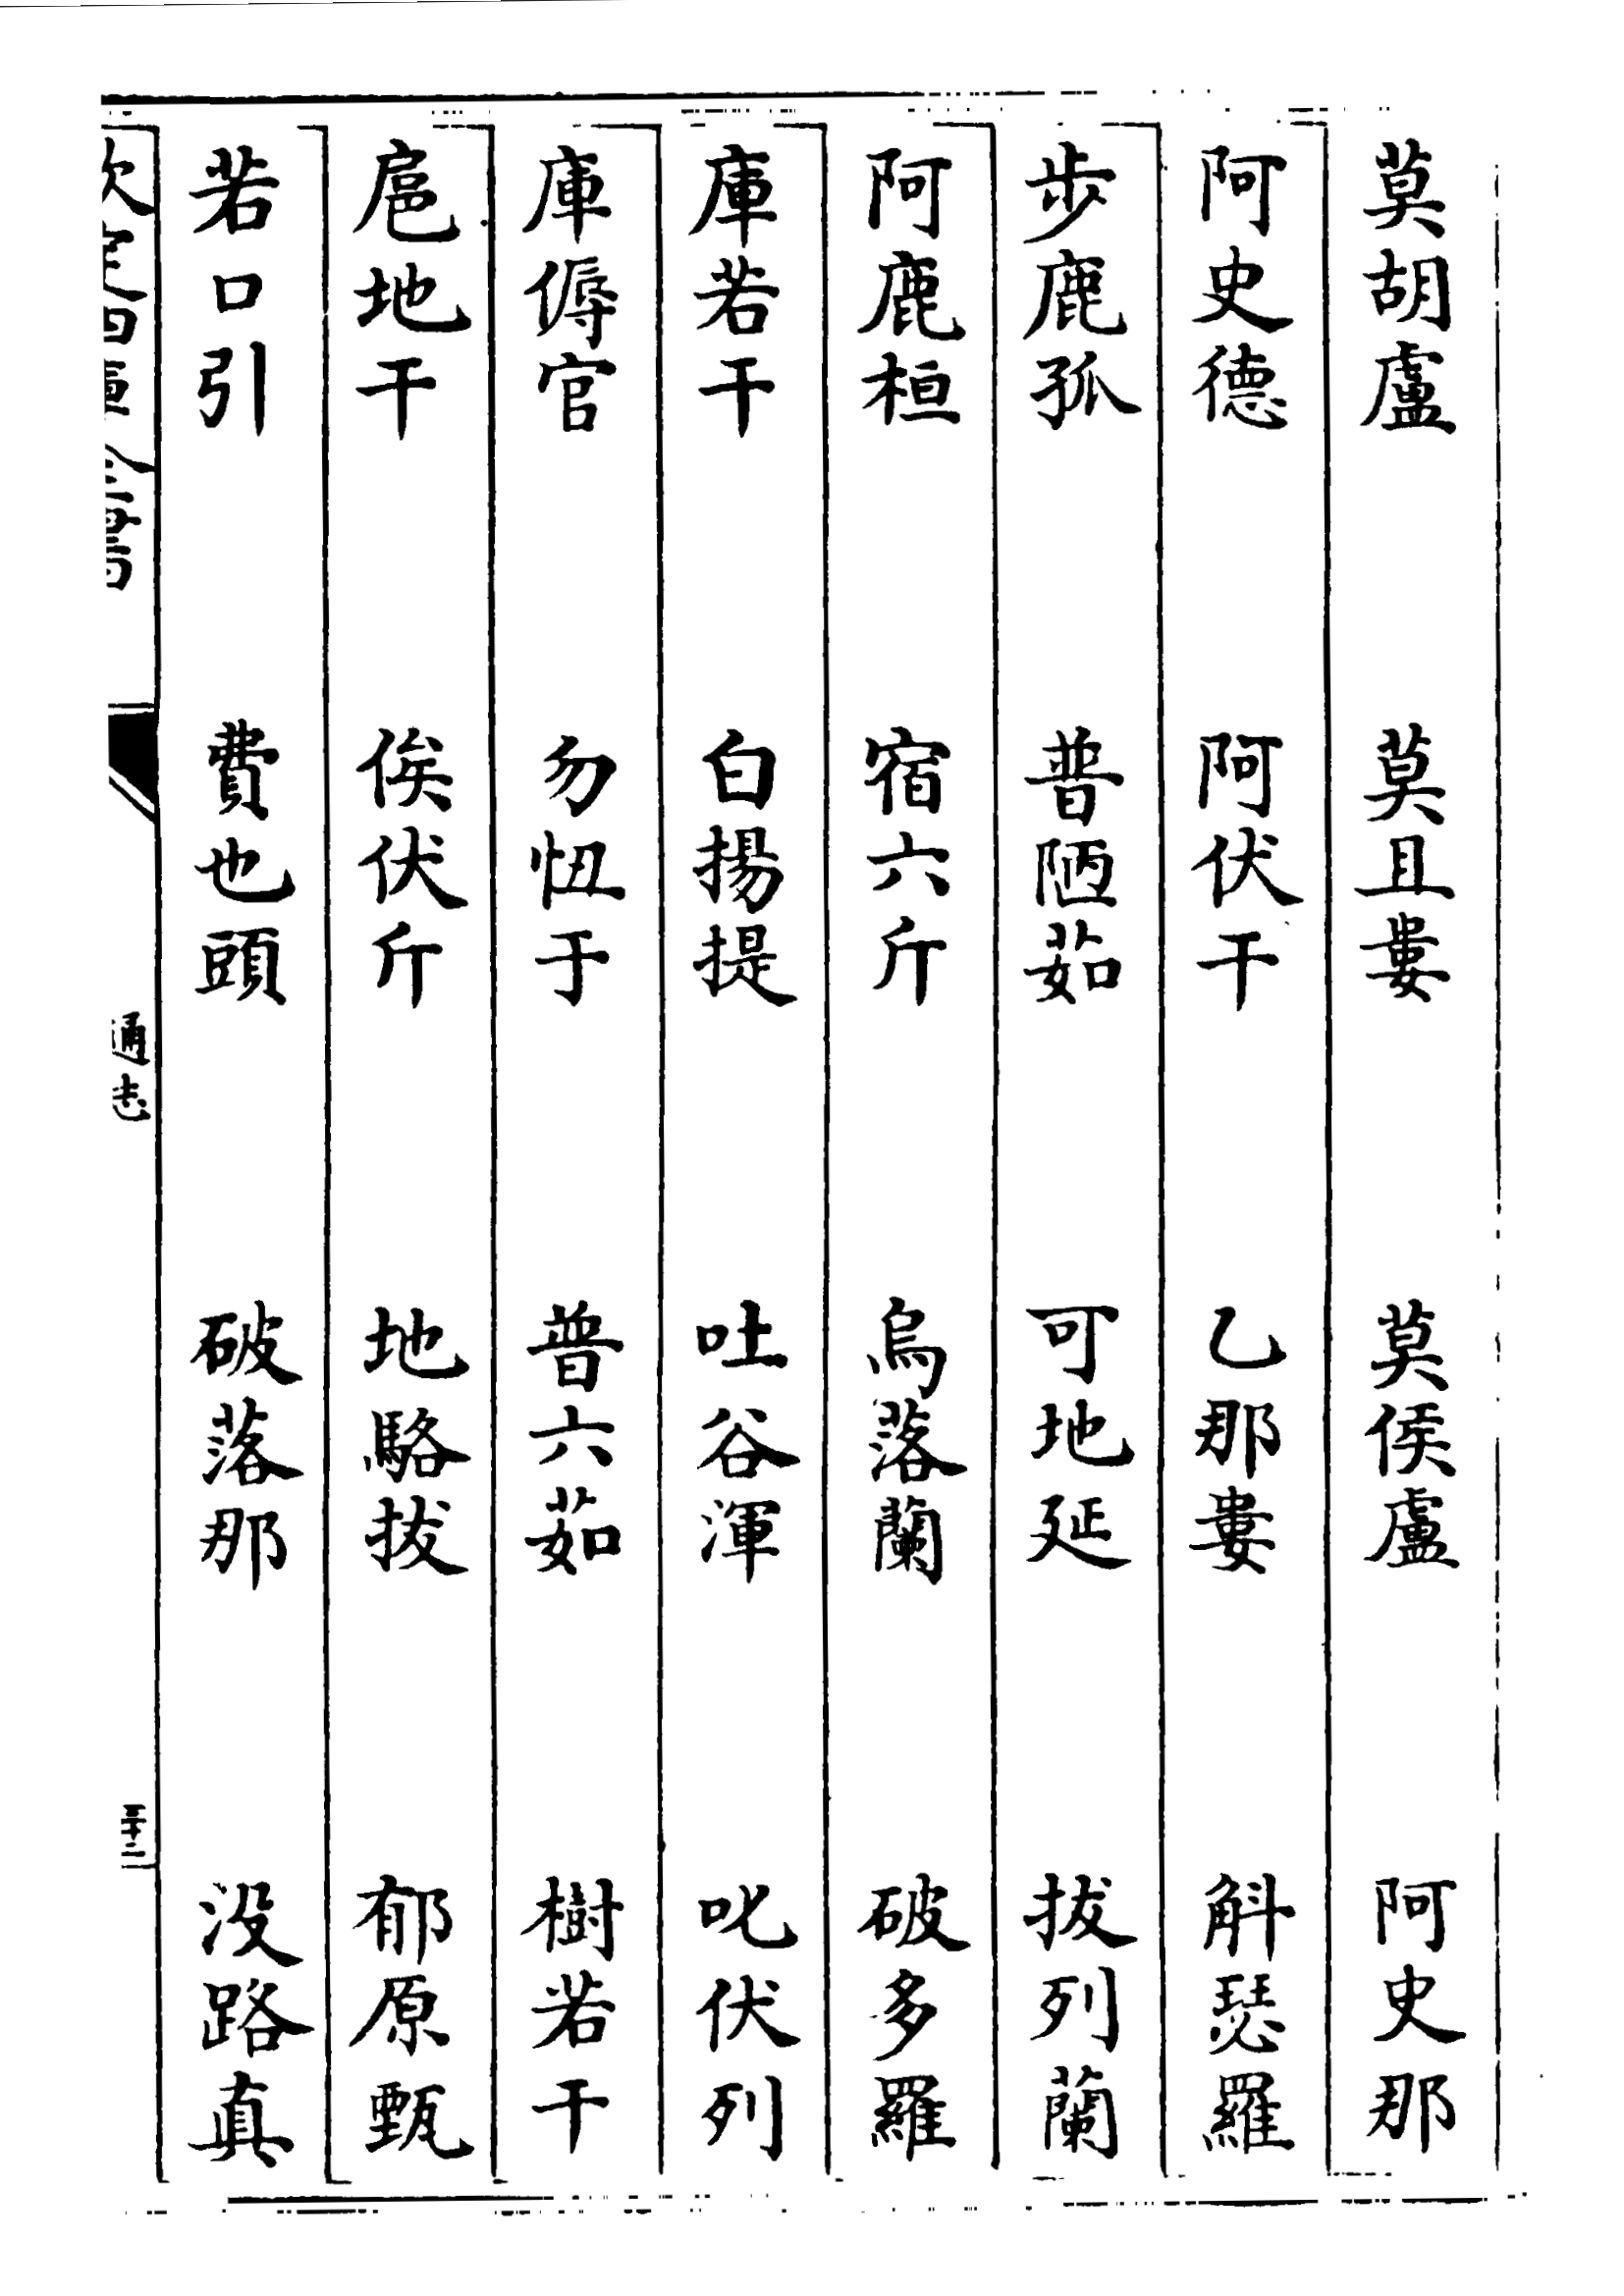 莫胡盧 莫且婁 莫侯盧 阿史那
阿史德 阿伏干 乙那婁 斛瑟羅
步鹿孤 普陋茹 可地延 拔列蘭
阿鹿桓 宿六斤 烏落蘭 破多羅
庫若干 白揚提 吐谷渾 叱伏列
庫傉官 勿忸于 普六茹 樹若干
扈地干 俟伏斤 地駱拔 郁原甄
若口引 費也頭 破落那 没路真
欽定四庫全書 通志 三十二